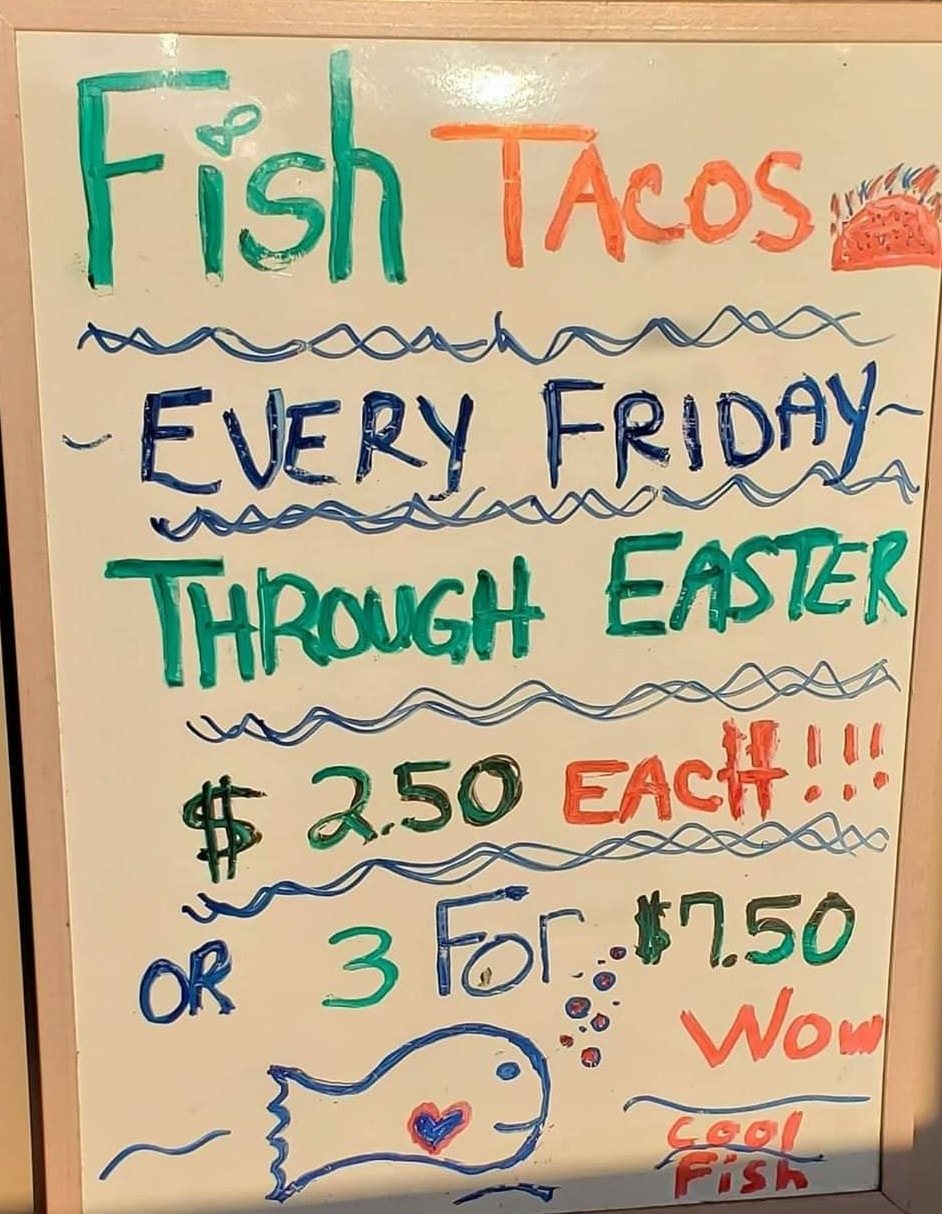 Fish TACOS
~ EVERY FRIDAY ~
THROUGH EASTER
$ 2.50 EACH!!!
OR 3 For $7.50
Wow
cool
Fish